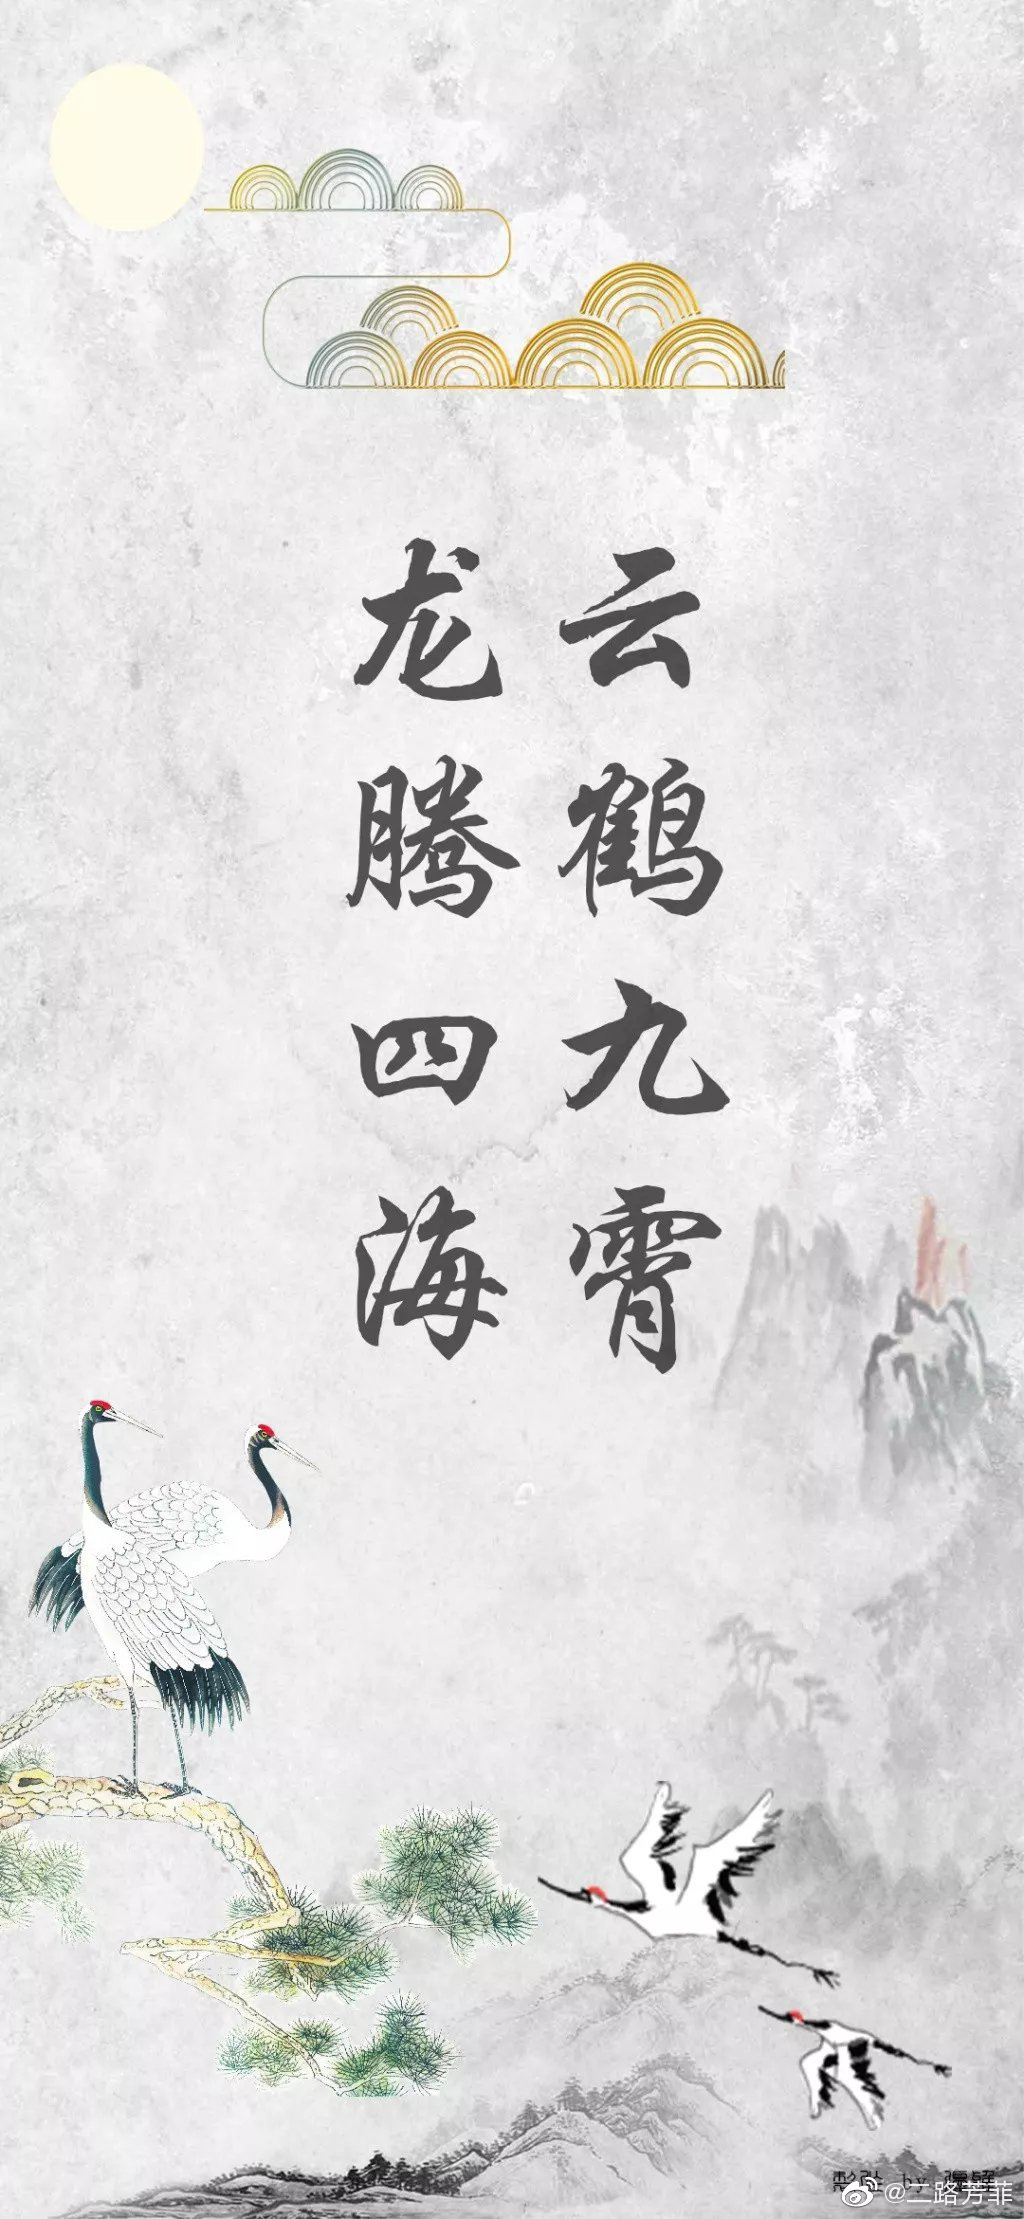 云鹤九霄
龙腾四海
@二路芳菲